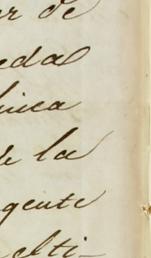 er de
eda
unica
de la
gente
elti-